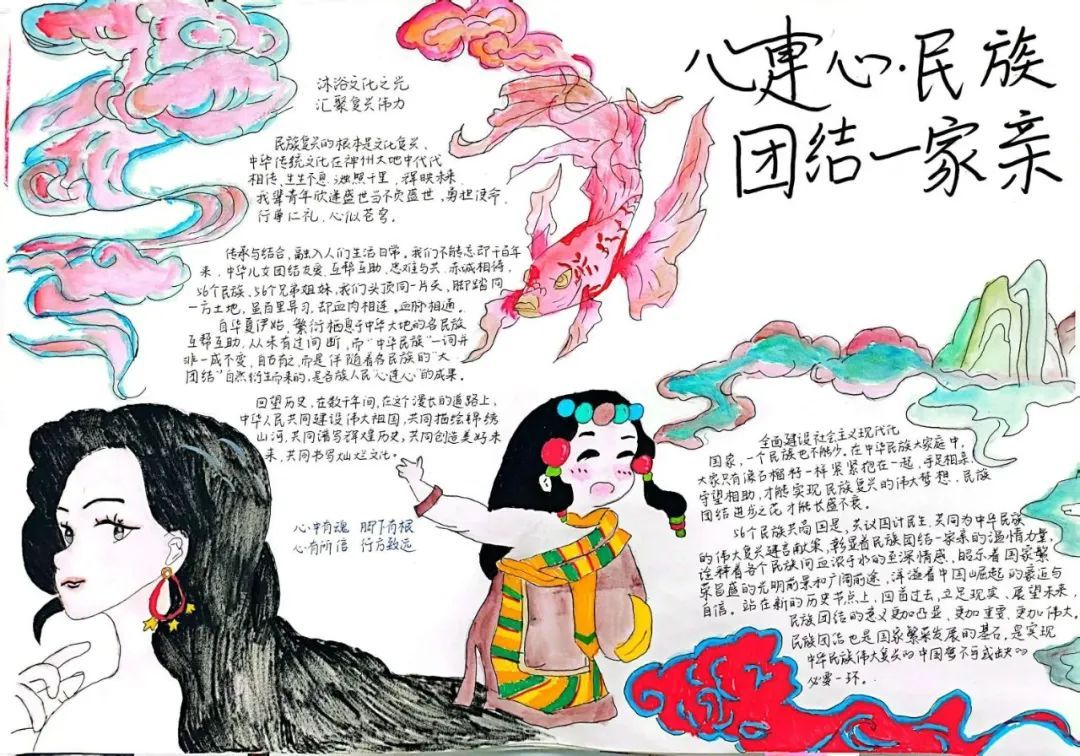 心连心·民族
团结一家亲
沐浴文化之光
汇聚复兴伟力
民族复兴的根本是文化复兴、
中华传统文化在神州大地中代代
相传、生生不息、烛照千里、辉映未来
我辈青年欣逢盛世当不负盛世，勇担使命、
行尊仁礼，心似苍穹。
传承与结合，融入人们生活日常，我们不能忘却千百年
来，中华儿女团结友爱、互帮互助、患难与共、赤诚相待，
56个民族、56个兄弟姐妹，我们头顶同一片天、脚踏同
一方土地，虽百里异习，却血肉相连、血脉相通。
自华夏伊始，繁衍栖息于中华大地的各民族
互帮互助，从未有过间断，而"中华民族"一词并
非一成不变，自古有之，而是伴随着各民族的"大
团结"自然衍生而来的，是各族人民"心连心"的成果。
回望历史，在数千年间，在这个漫长的道路上，
中华人民共同建设伟大祖国，共同描绘锦绣
山河，共同谱写辉煌历史，共同创造美好未
来，共同书写灿烂文化。
心中有魂 脚下有根
心有所信 行方致远
全面建设社会主义现代化
国家，一个民族也不能少。在中华民族大家庭中，
大家只有像石榴籽一样紧紧抱在一起，手足相亲、
守望相助，才能实现民族复兴的伟大梦想，民族
团结进步之花才能长盛不衰。
56个民族共商国是，共议国计民生，共同为中华民族
的伟大复兴建言献策，彰显着民族团结一家亲的温情力量，
诠释着各个民族间血浓于水的至深情感，昭示着国家繁
荣昌盛的光明前景和广阔前途，洋溢着中国崛起的豪迈与
自信。站在新的历史节点上，回首过去、立足现实、展望未来，
民族团结的意义更加凸显、更加重要、更加伟大。
民族团结也是国家繁荣发展的基石，是实现
中华民族伟大复兴的中国梦不可或缺的
必要一环。